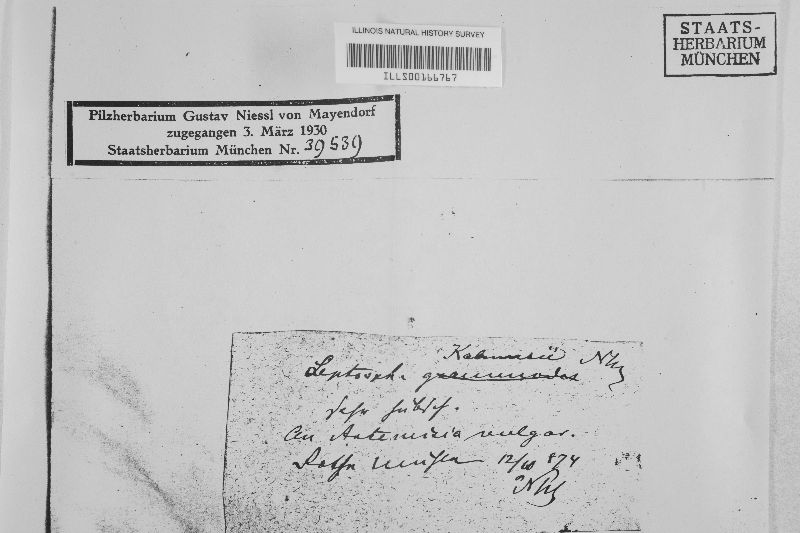 ILLINOIS NATURAL HISTORY SURVEY
ILLS00166767
STAATS-
HERBARIUM
MÜNCHEN
Pilzherbarium Gustav Niessl von Mayendorf
zugegangen 3. März 1930
Staatsherbarium München Nr. 39539
Leptosph.
sehr hübsch.
An Artemisia vulgar.
12/10 874